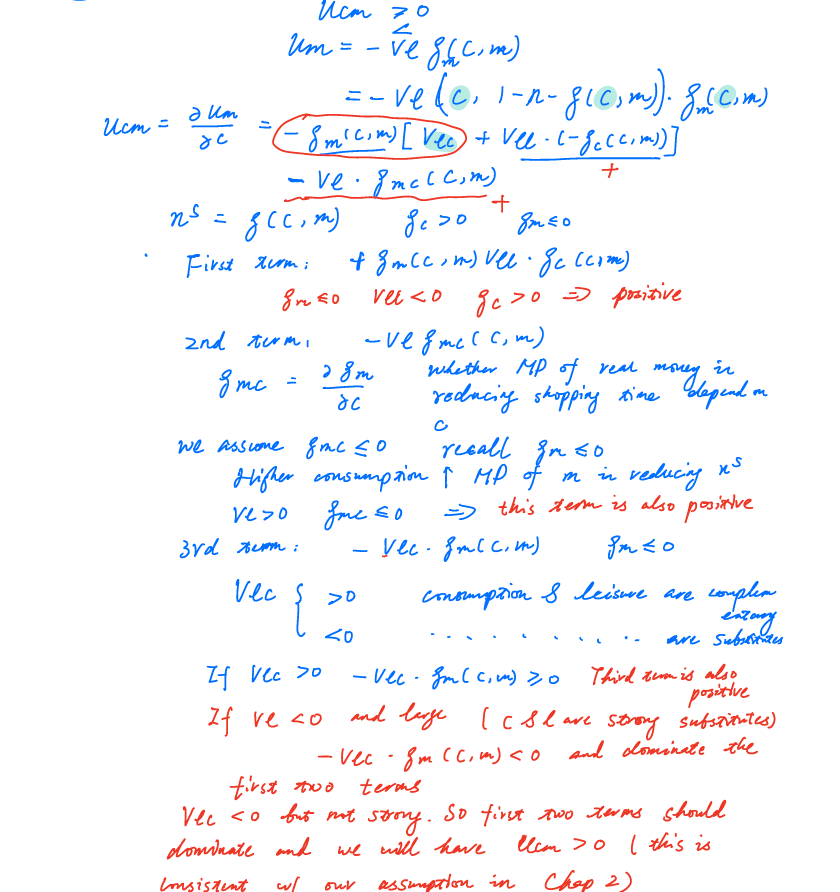 Ucm ≷ 0
Um = - Vl gm(c, m)
= - Vl (c, 1-n-g(c, m)) · gm(c, m)
Ucm = ∂Um/∂c = - gm(c, m) [Vlc + Vll · (-gc(c, m))]
+
- Vl · gmc(c, m)
+
n^s = g(c, m) gc > 0 gm ≤ 0
First term: + gm(c, m) Vll · gc(c, m)
gm ≤ 0 Vll < 0 gc > 0 ⇒ positive
2nd term: - Vl gmc(c, m)
gmc = ∂gm/∂c whether MP of real money in
reducing shopping time depend on
c
we assume gmc ≤ 0 recall gm ≤ 0
Higher consumption ↑ MP of m in reducing n^s
Vl > 0 gmc ≤ 0 ⇒ this term is also positive
3rd term: - Vlc · gm(c, m) gm ≤ 0
Vlc { > 0 consumption & leisure are complem
entary
< 0 . . . . . . . . . . . are substitutes
If Vlc > 0 - Vlc · gm(c, m) ≥ 0 Third term is also
positive
If Vl < 0 and large (c & l are strong substitutes)
- Vlc · gm(c, m) < 0 and dominate the
first two terms
Vlc < 0 but not strong. So first two terms should
dominate and we will have Ucm > 0 (this is
consistent w/ our assumption in Chap 2)